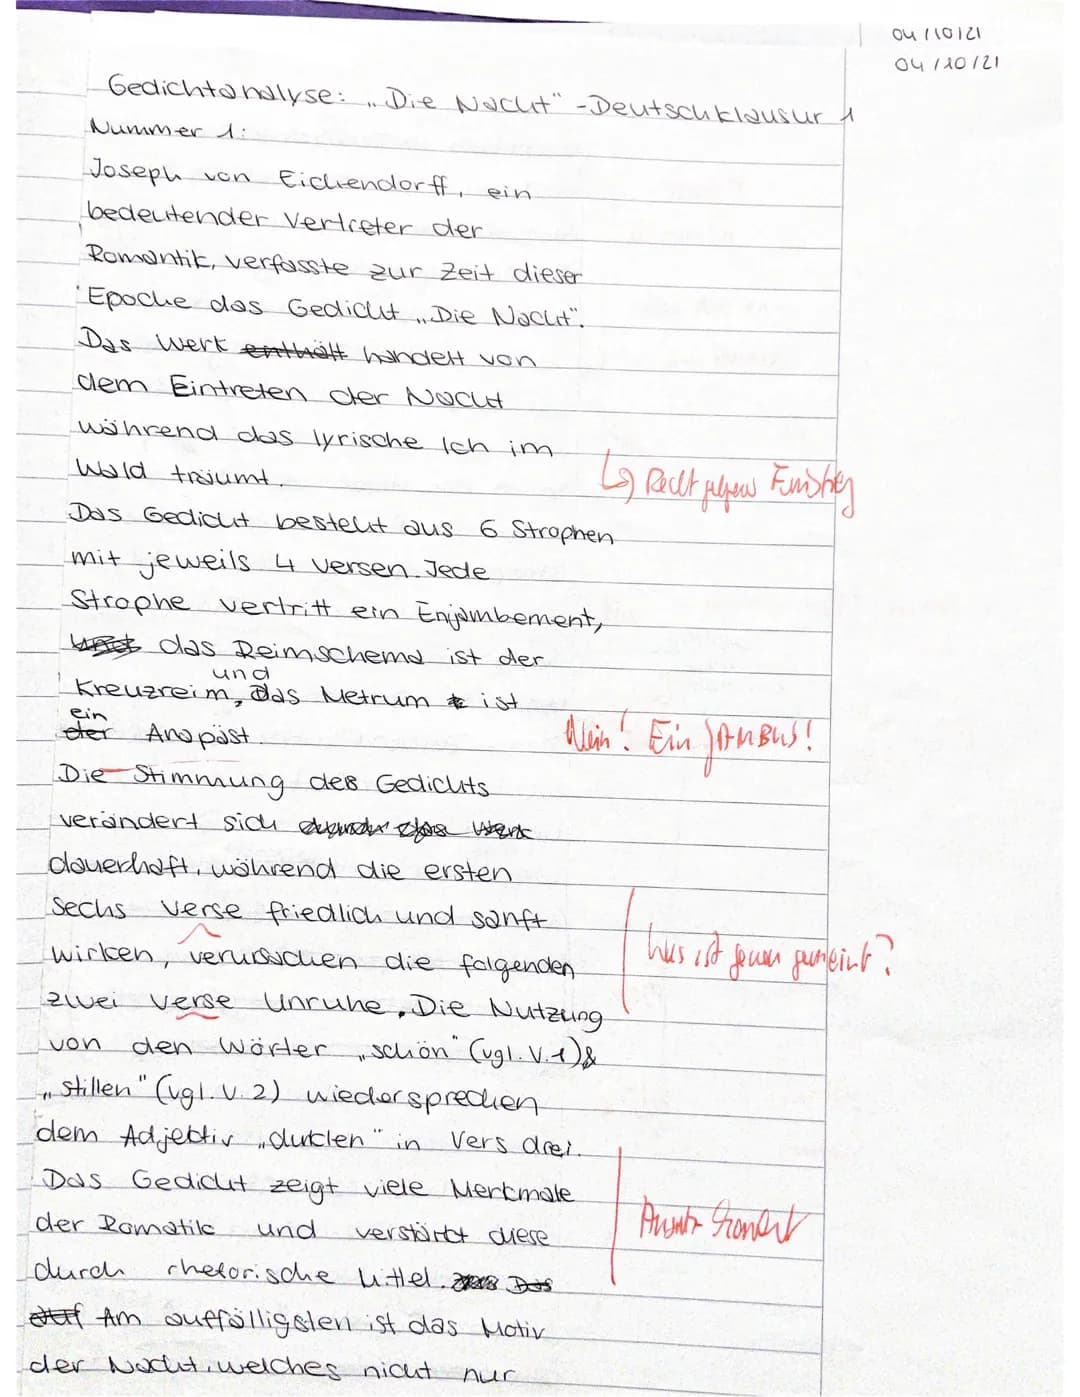 04/10/21
04/10/21
Gedichtanalyse: „Die Nacht" - Deutschklausur 1
Nummer 1:
Joseph von Eichendorff, ein
bedeutender Vertreter der
Romantik, verfasste zur Zeit dieser
Epoche das Gedicht „Die Nacht".
Das Werk enthält handelt von
dem Eintreten der Nacht
während das lyrische Ich im
Wald träumt.
↳ Recht
Das Gedicht besteht aus 6 Strophen
mit jeweils 4 Versen. Jede
Strophe vertritt ein Enjambement,
und das Reimschema ist der
Kreuzreim, und das Metrum ist
der ein Anapäst.
Nein! Ein JAMBUS!
Die Stimmung des Gedichts
verändert sich durch das Werk
dauerhaft, während die ersten
sechs Verse friedlich und sanft
wirken, verursachen die folgenden
Was ist genau gemeint?
zwei Verse Unruhe. Die Nutzung
von den Wörter „schön" (vgl. V. 1) &
„stillen" (vgl. V. 2) wiedersprechen
dem Adjektiv „duklen" in Vers drei.
Das Gedicht zeigt viele Merkmale
der Romatik und verstärkt diese
durch rhetorische Mittel. Das
Auf Am auffälligsten ist das Motiv
der Nacht, welches nicht nur